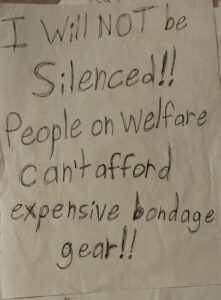 I Will NOT be
Silenced!!
People on Welfare
can't afford
expensive bondage
gear!!